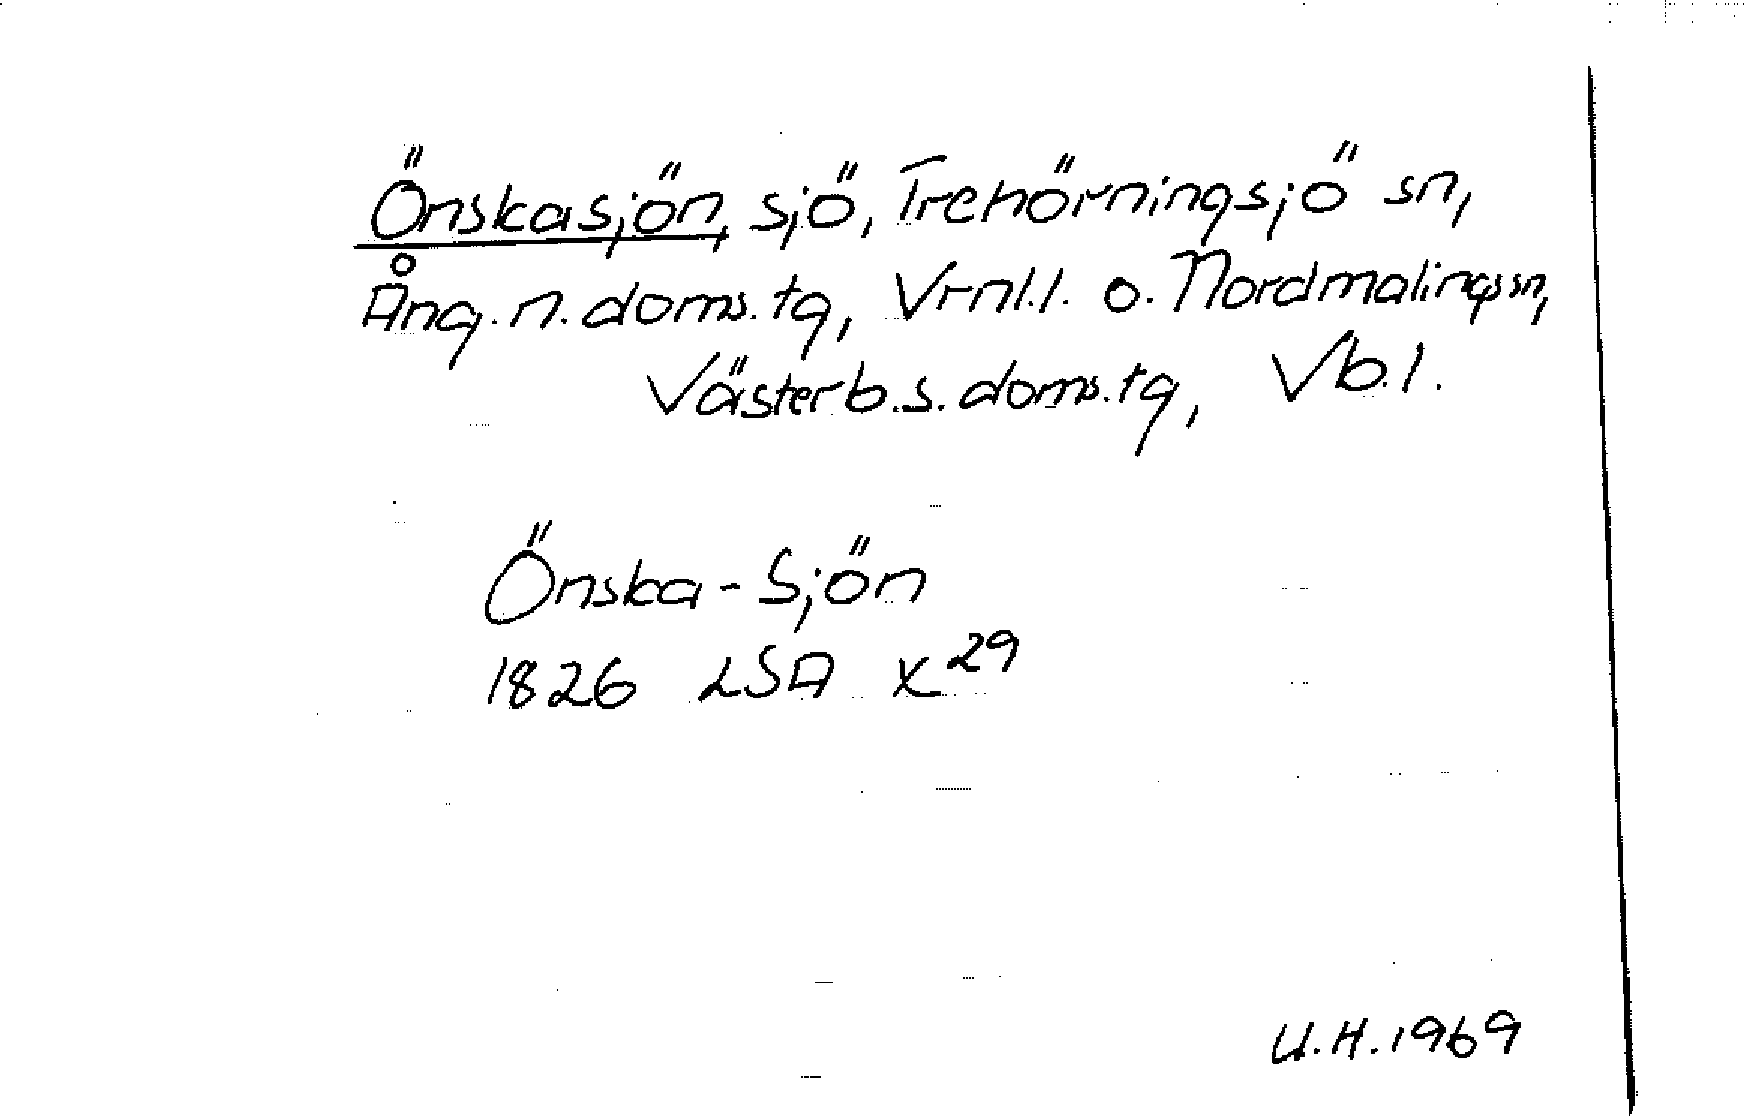 Önskasjön, sjö, Trehörningsjö sn,
Ång. n. doms. tg, Vrnl. l. o. Nordmalings sn,
Västerb. s. doms. tg, Vb. l.
Önska-Sjön
1826 LSA X²⁹
U.H. 1969